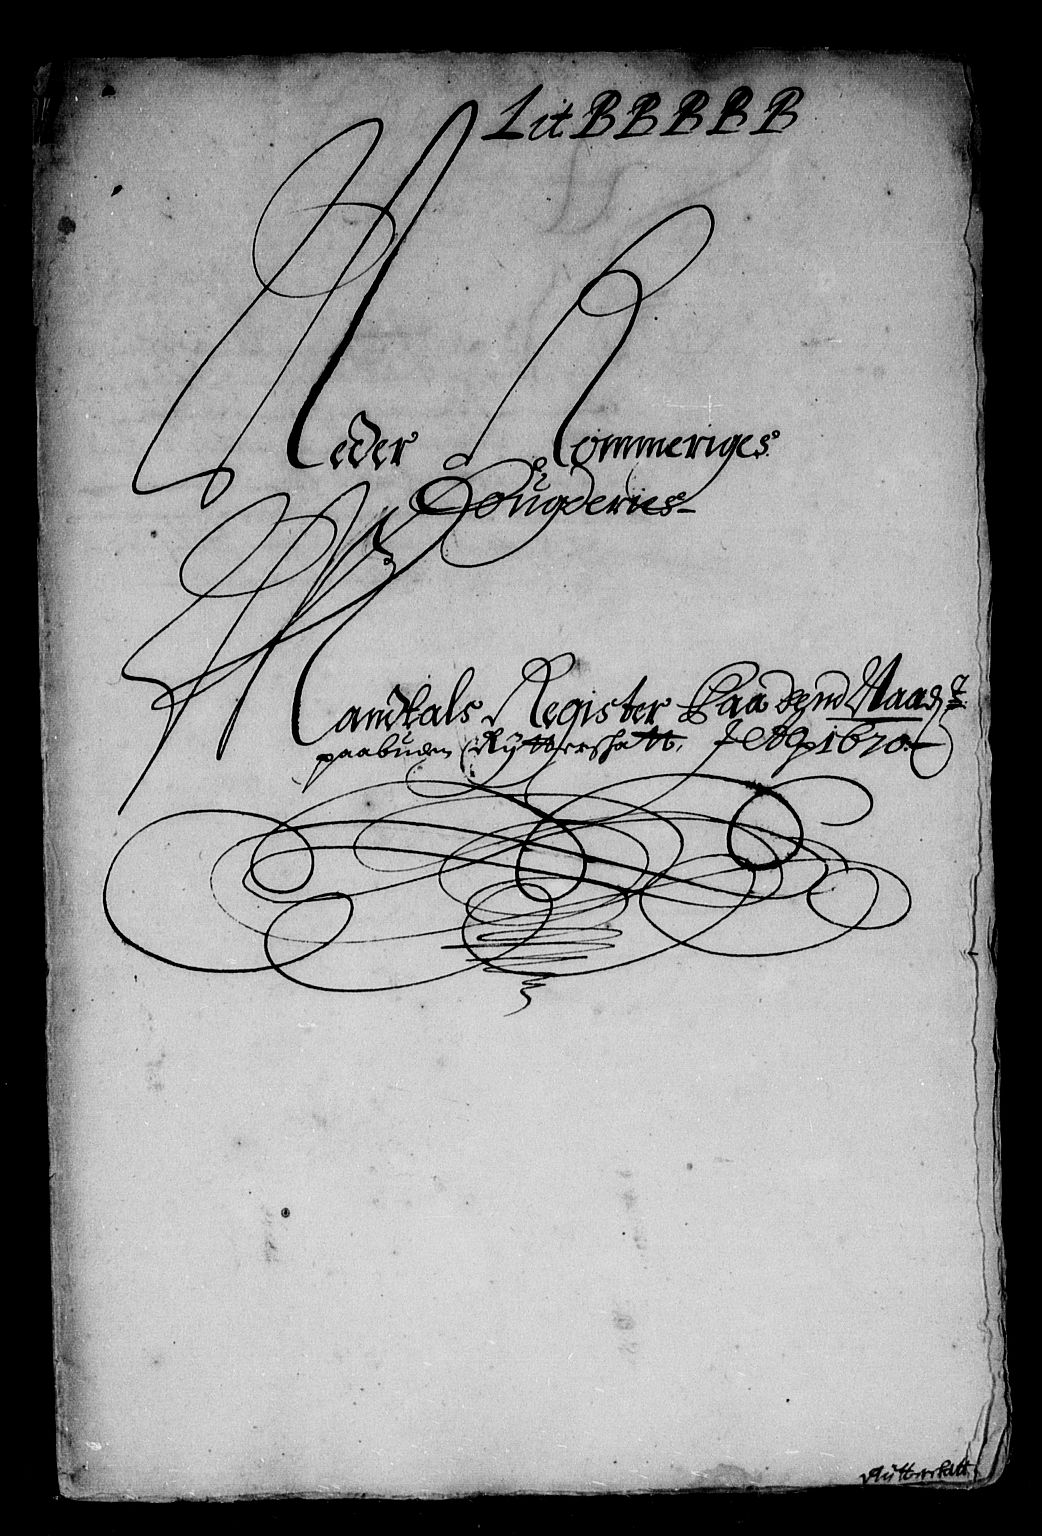 Lit BBBBB
Neder Rommeriges
Fougderies
Mandtals Register Paa dend Naad:
paabuden Rÿtterskatt. 1670.
Rütterskatt